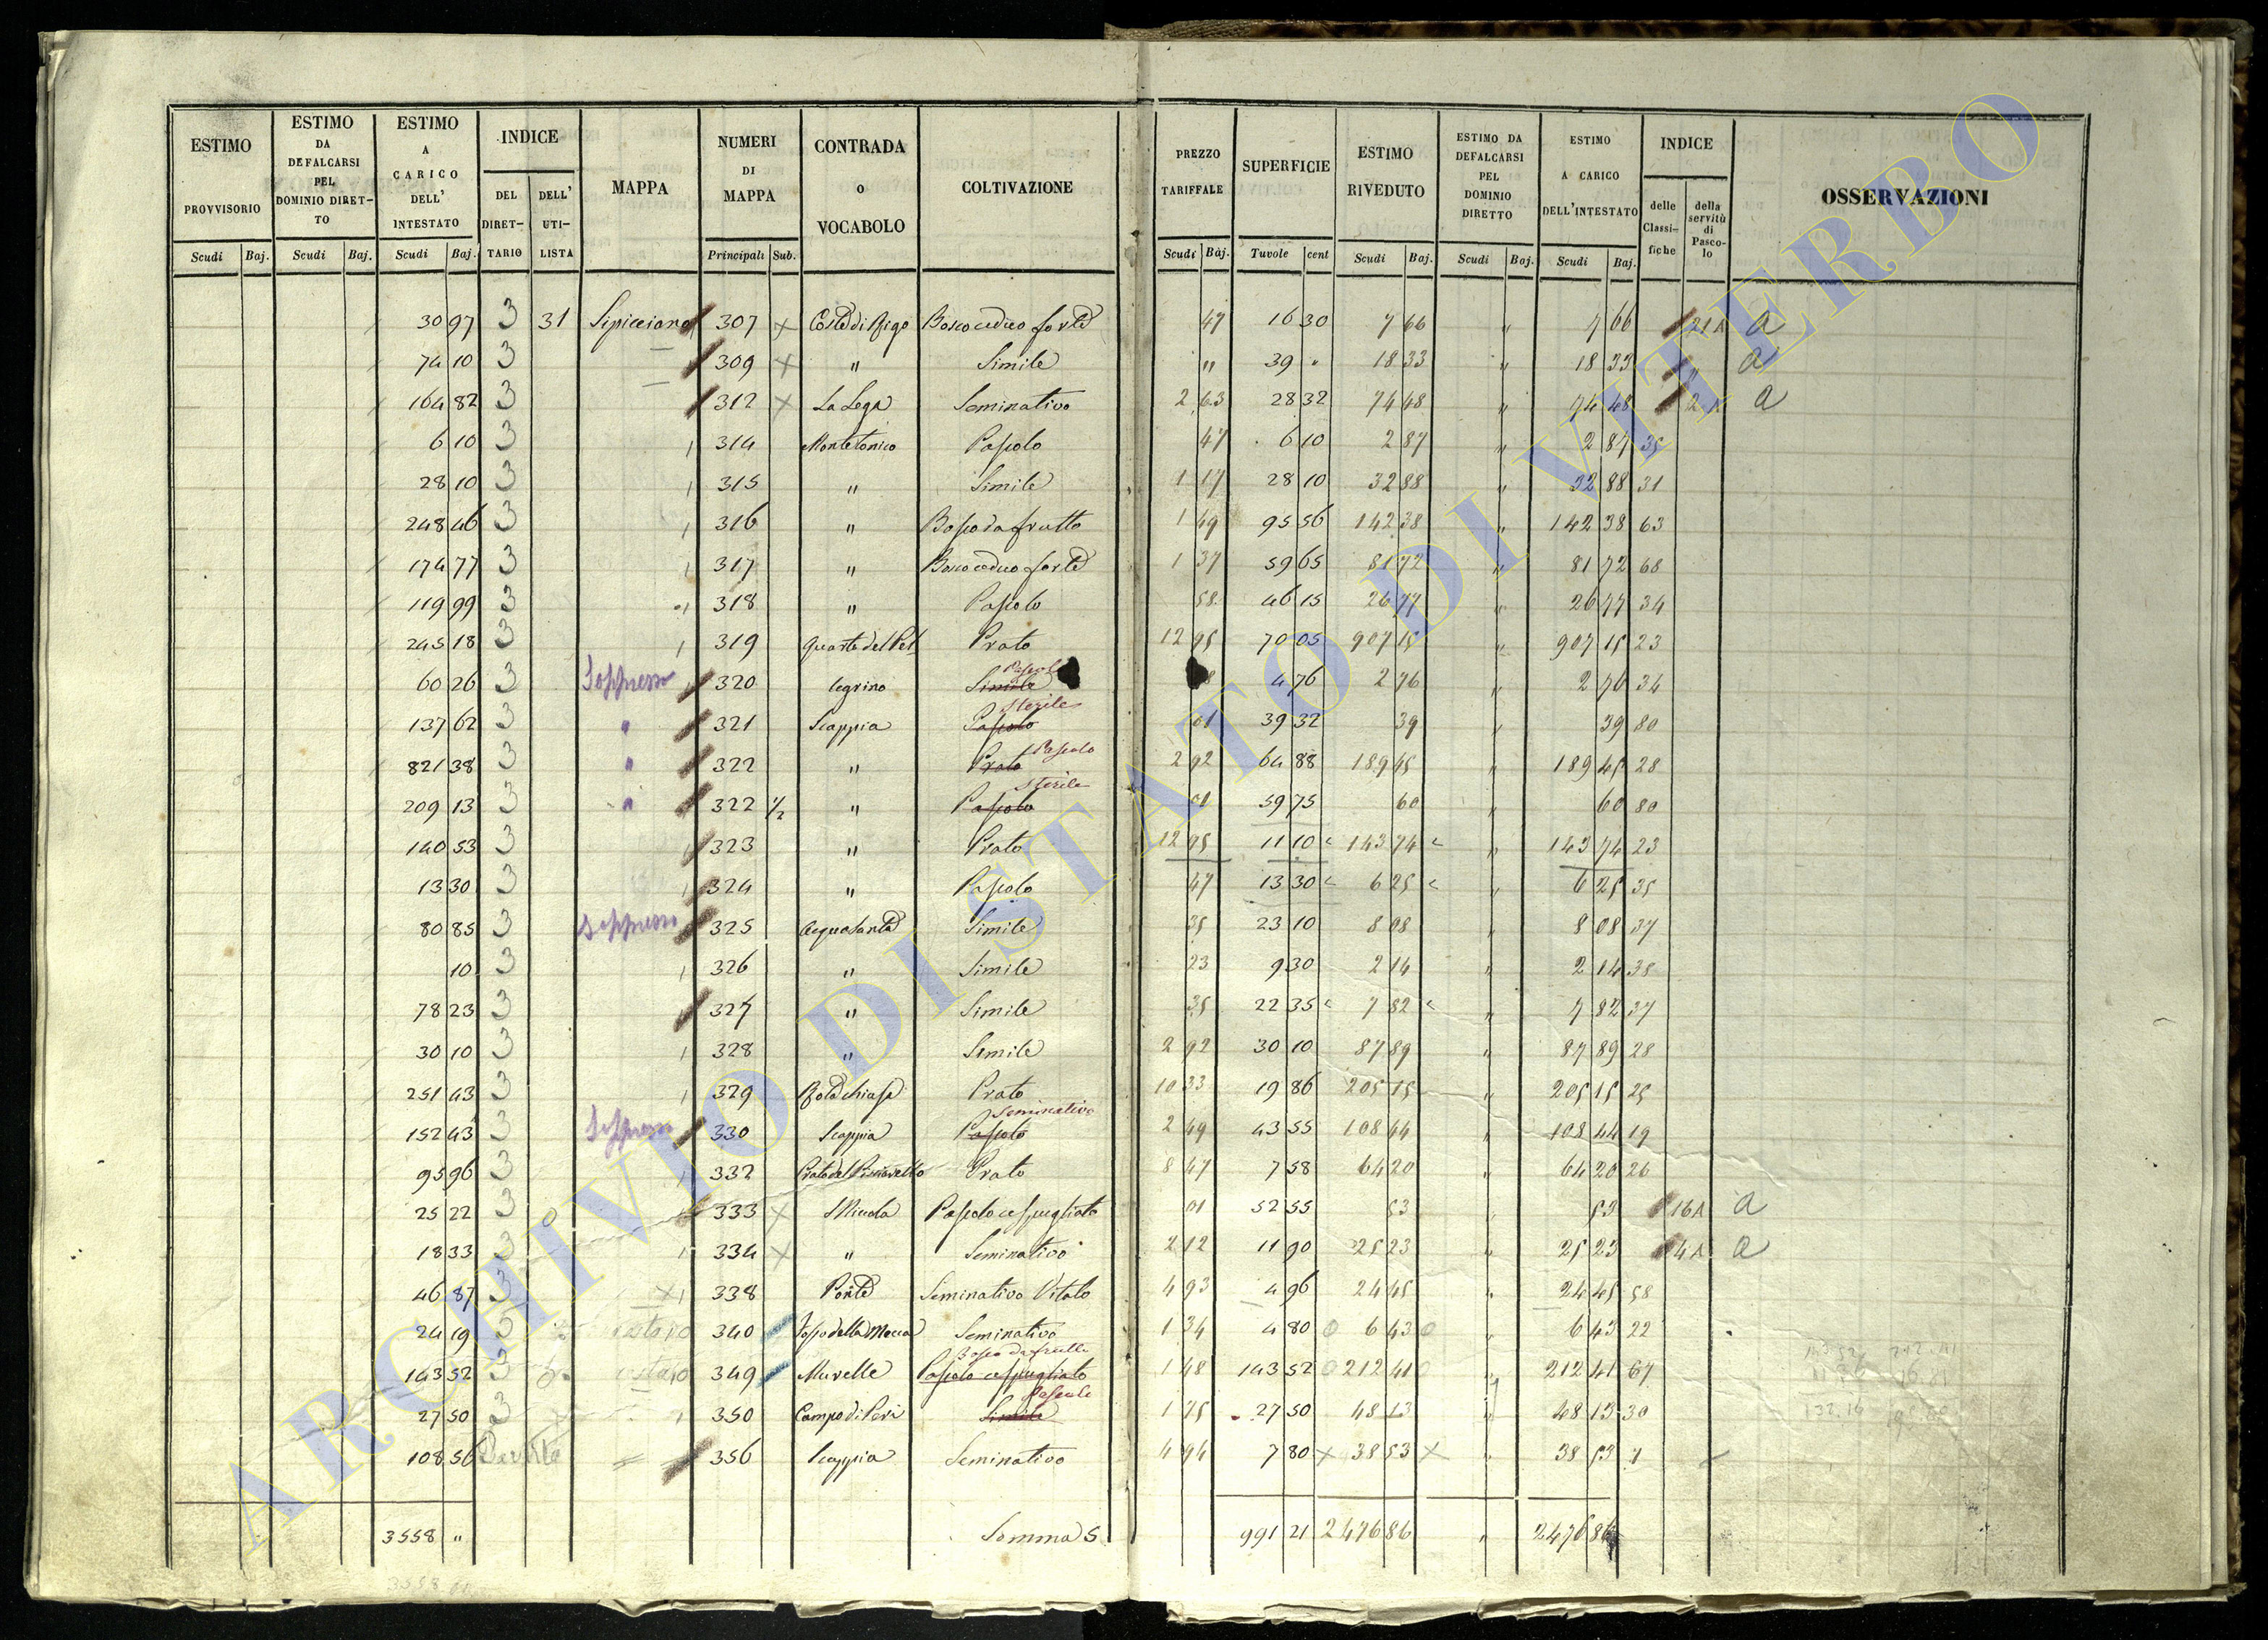 ESTIMO PROVVISORIO | ESTIMO DA DEFALCARSI PEL DOMINIO DIRET-TO | ESTIMO A CARICO DELL' INTESTATO | INDICE DEL DIRET-TARIO | DELL' UTI-LISTA | MAPPA | NUMERI DI MAPPA | CONTRADA O VOCABOLO | COLTIVAZIONE | PREZZO TARIFFALE | SUPERFICIE | ESTIMO RIVEDUTO | ESTIMO DA DEFALCARSI PEL DOMINIO DIRETTO | ESTIMO A CARICO DELL'INTESTATO | INDICE delle Classi-fiche | della servitù di Pasco-lo | OSSERVAZIONI
Scudi | Baj. | Scudi | Baj. | Scudi | Baj. | Principali | Sub. | Scudi | Baj. | Tuvole | cent | Scudi | Baj. | Scudi | Baj. | Scudi | Baj.
30 97 3 31 Sipicciano 307 × Coste di Rigo Bosco ceduo forte 47 16 30 7 66 " 7 66 21 A a
74 10 3 309 × " Simile " 39 " 18 33 " 18 33 " a
164 82 3 312 × La Lega Seminativo 2 63 28 32 74 48 " 74 48 2 A a
6 10 3 314 Montetonico Pascolo 47 6 10 2 87 " 2 87 35
28 10 3 315 " Simile 1 17 28 10 32 88 " 32 88 31
248 46 3 316 " Bosco da frutto 1 49 95 56 142 38 " 142 38 63
174 77 3 317 " Bosco ceduo forte 1 37 59 65 81 72 " 81 72 68
119 99 3 318 " Pascolo 58 46 15 26 77 " 26 77 34
245 18 3 319 Quarto del Pel Prato 12 95 70 05 907 15 " 907 15 23
60 26 3 Soppresso 320 legrino Simile Pascolo 8 4 76 2 76 " 2 76 34
137 62 3 " 321 Scappia Pascolo Sterile 01 39 32 39 " 39 80
821 38 3 " 322 " Prato Pascolo 2 92 64 88 189 45 " 189 45 28
209 13 3 " 322 1/2 " Pascolo Sterile 01 59 75 60 " 60 80
140 53 3 323 " Prato 12 95 11 10 143 74 " 143 74 23
13 30 3 324 " Pascolo 47 13 30 6 25 " 6 25 35
80 85 3 Soppresso 325 Acqua Santa Simile 35 23 10 8 08 " 8 08 37
10 3 326 " Simile 23 9 30 2 14 " 2 14 38
78 23 3 327 " Simile 35 22 35 7 82 " 7 82 37
30 10 3 328 " Simile 2 92 30 10 87 89 " 87 89 28
251 43 3 329 Prato 10 33 19 86 205 15 " 205 15 25
152 43 3 Soppresso 330 Scappia Pascolo Seminativo 2 49 43 55 108 44 " 108 44 19
95 96 3 332 Prato 8 47 7 58 64 20 " 64 20 26
25 22 3 333 × S Nicola Pascolo cespugliato 01 52 55 53 " 53 16 A a
18 33 3 334 × " Seminativo 2 12 11 90 25 23 " 25 23 4 A a
46 87 3 338 Ponte Seminativo Vitato 4 93 4 96 24 45 " 24 45 58
24 19 3 340 Seminativo 1 34 4 80 6 43 " 6 43 22
143 52 3 349 Murelle Pascolo cespugliato Bosco da frutto 1 48 143 52 212 41 " 212 41 67
27 50 3 350 Campo di Peri Simile Pascolo 1 75 27 50 48 13 " 48 13 30
108 56 356 Scappia Seminativo 4 94 7 80 × 38 53 × " 38 53 7
3558 " Somma S. 991 21 2476 86 " 2476 86
ARCHIVIO DI STATO DI VITERBO